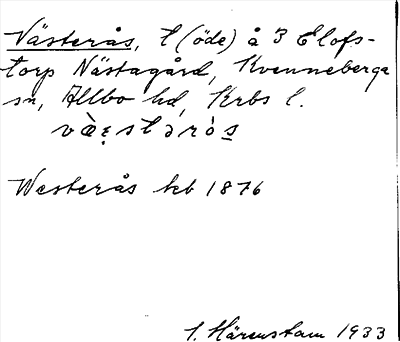 Västerås, t (öde) å 3 Elofs-
torp Nästagård, Kvenneberga
sn, Allbo hd, Krbs l.
væ̀stəròs
Westerås kb 1876
I. Härenstam 1933